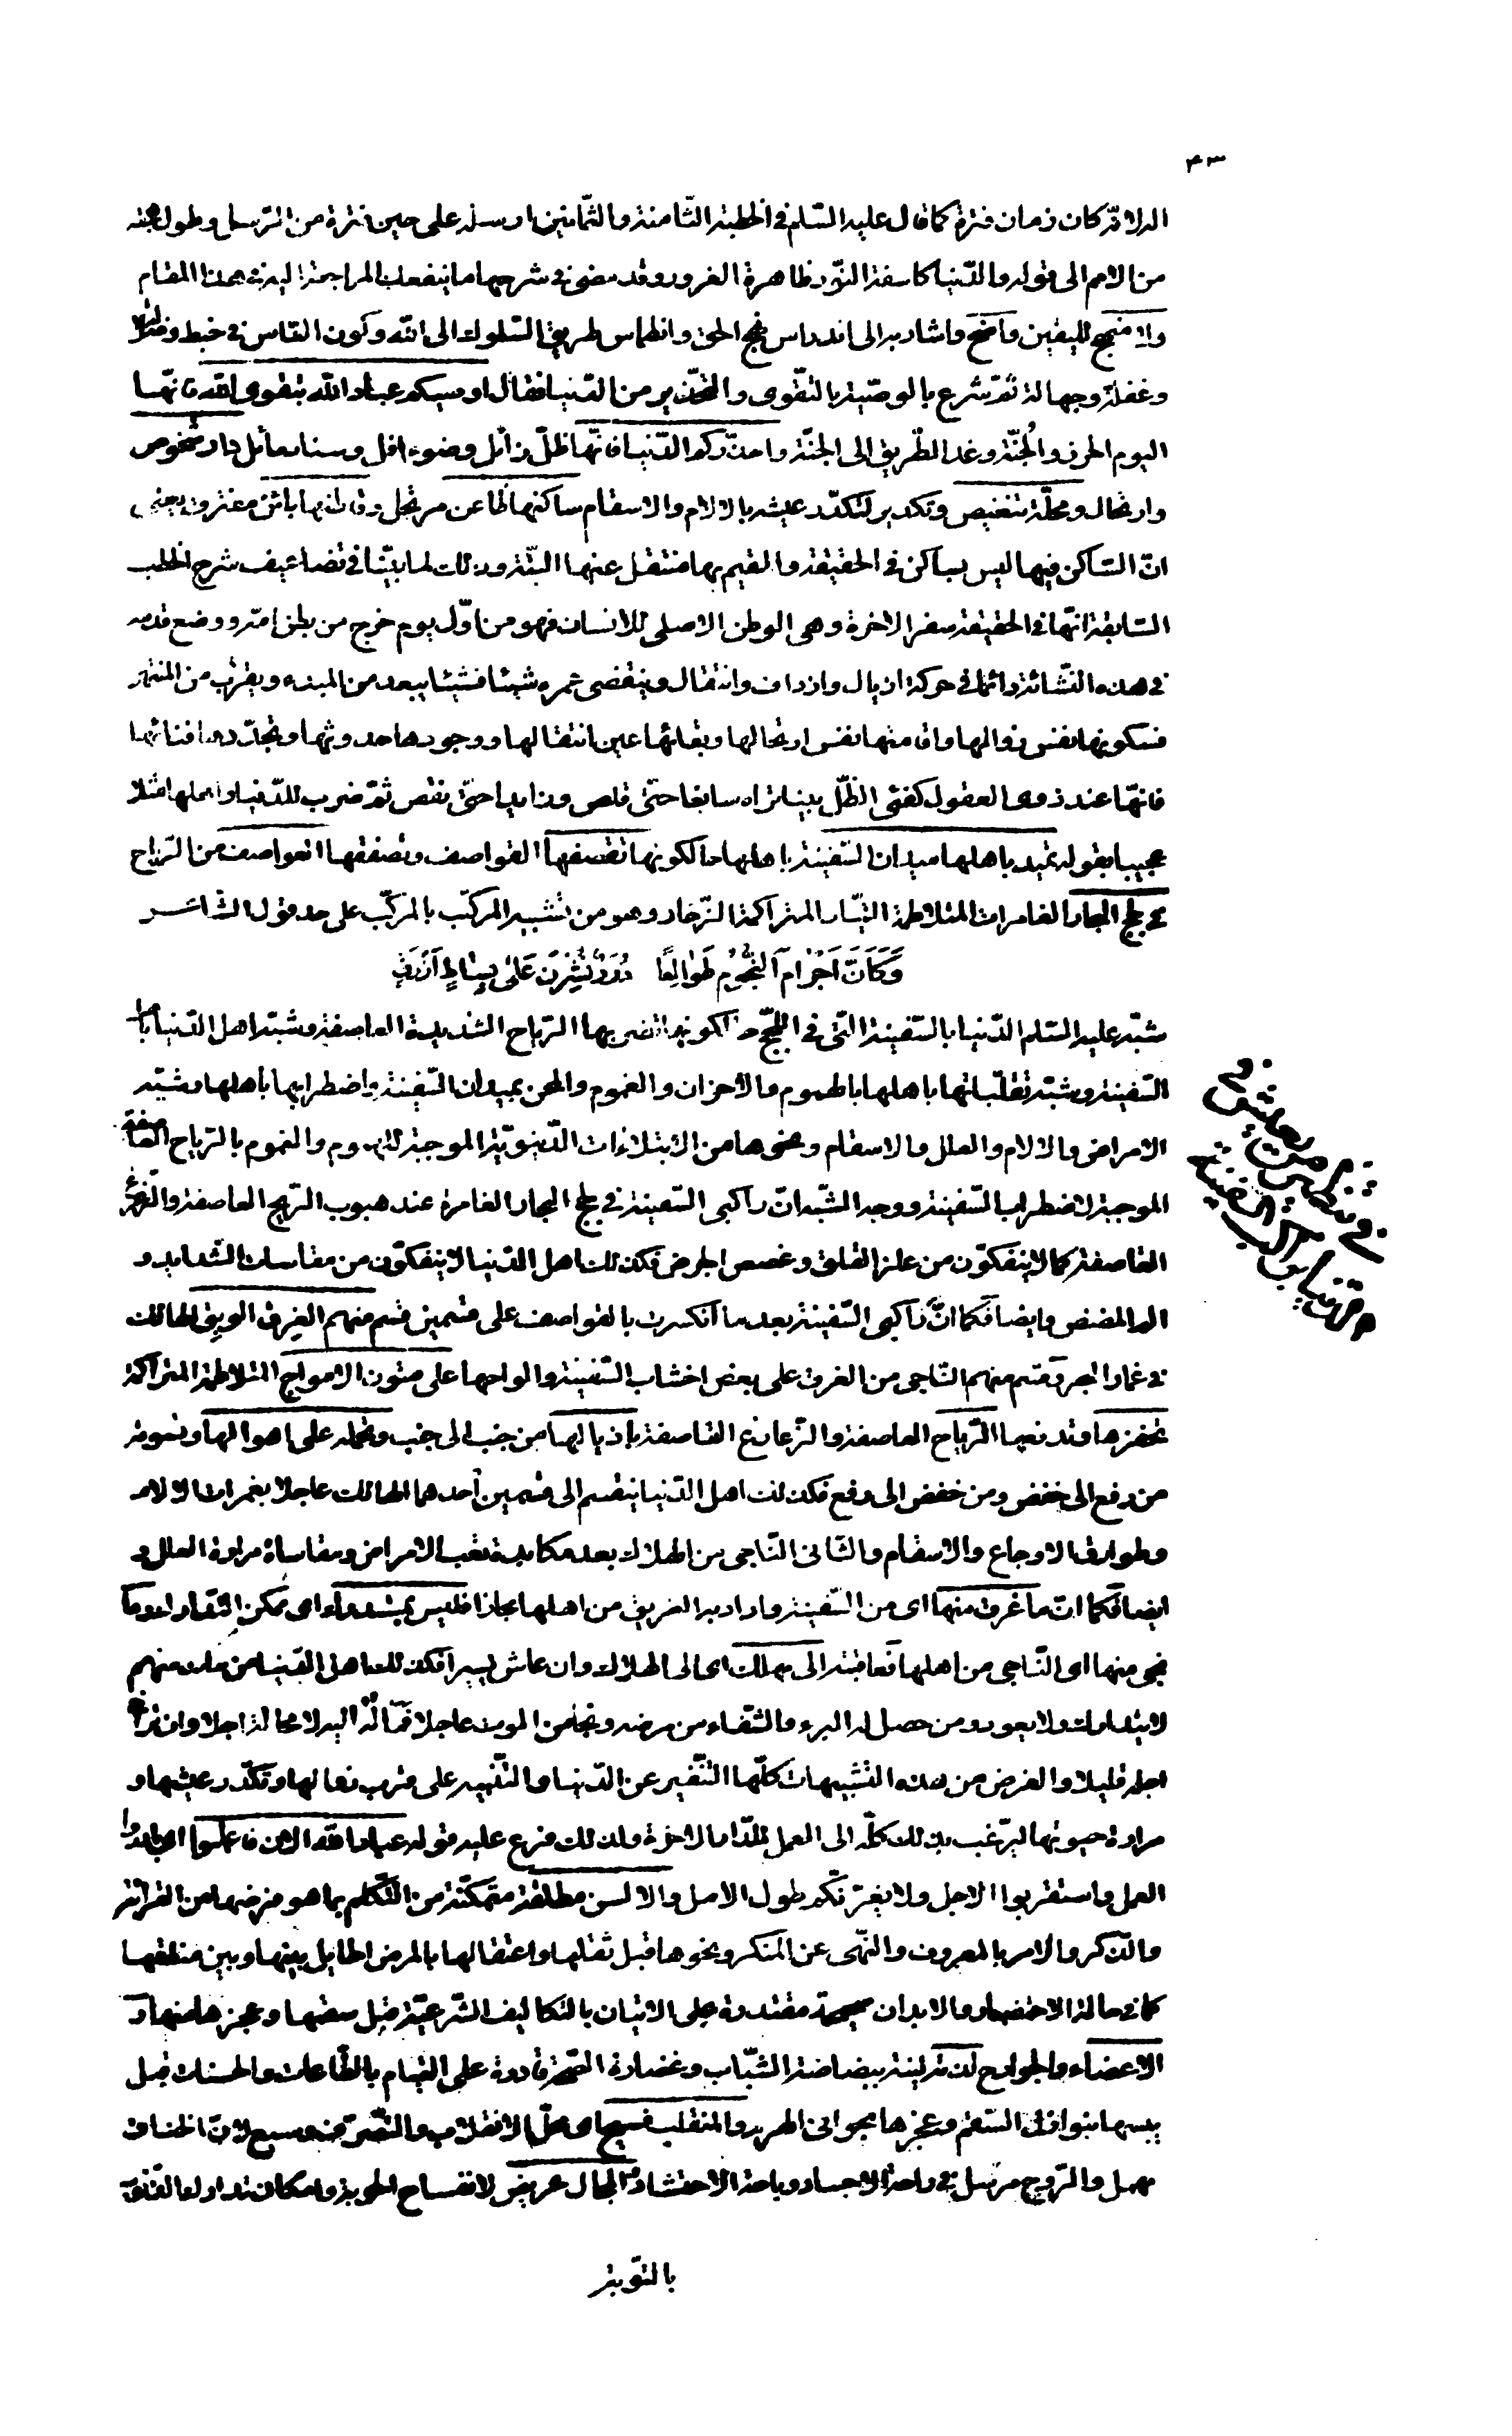 ٤٣
الدلالة كان زمان فترة كما قال عليه السّلم في الخطبة الثّامنة والثّمانين ارسله على حين فترة من الرّسل وطول هجعة
من الامم الى قوله والدّنيا كاسفة النّور ظاهرة الغرور وقد مضى في شرحها ما ينفعك المراجعة اليه في هذا المقام
ولا منهج لليقين واضح واشار به الى اندراس نهج الحق وانطماس طريق السّلوك الى الله وكون النّاس في خبط وضلال
وغفلة وجهالة ثمّ شرع بالوصيّة بالتّقوى والتّحذير من الدّنيا فقال اوصيكم عباد الله بتقوى الله فانّها
اليوم الحرز والجُنّة وغدا الطّريق الى الجنّة واحذّركم الدّنيا فانّها ظلّ زائل وضوء افل وسناد مائل دار شخوص
وارتحال ومحلّة تنغيص وتكدير لتكدّر عيشه بالالام والاسقام ساكنها ظاعن مرتحل وقاطنها بائن مفترق يعنى
انّ السّاكن فيها ليس بساكن في الحقيقة والمقيم بها منتقل عنها البتّة وذلك لما بيّنا في تضاعيف شرح الخطب
السّابقة انّها في الحقيقة سفر الاخرة وهى الوطن الاصلى للانسان فهو من اوّل يوم خرج من بطن امّه ووضع قدمه
في هذه النّشائة دائما في حركة وانتقال وينقضى عمره شيئا فشيئا يبعد من المبدء ويقرب من المنتهى
فسكونها نفس زوالها واقامتها نفس ارتحالها وبقائها عين انتقالها ووجودها حدوثها وتجدّدها فنائها
فانّها عند ذوى العقول كفئ الظّل بينا تراه سابغا حتّى قلص وزايدا حتّى نقص ثمّ ضرب للدّنيا واهلها مثلا
عجيبا بقوله تميد باهلها ميدان السّفينة باهلها حالكونها تقصفها القواصف وتصفقها العواصف من الرّياح
في لجج البحار الغامرات المتلاطمة التّيّار المتراكمة الزّخار وهو من تشبيه المركّب بالمركّب على حد قول الشّاعر
وَكَأَنَّ اَجْرامَ النُّجُومِ طَوالِعًا دُرَرٌ نُثِرْنَ عَلىٰ بِساطٍ اَزْرَقِ
شبّه عليه السّلم الدّنيا بالسّفينة الّتى في اللّجج حالكونها تضربها الرّياح الشّديدة العاصفة وشبّه اهل الدّنيا باهل
السّفينة وشبّه تقلّباتها باهلها بالهموم والاحزان والغموم والمحن بميدان السّفينة واضطرابها باهلها وشبّه
الامراض والالام والعلل والاسقام ونحوها من الابتلاءات الدّنيويّة الموجبة للهموم والغموم بالرّياح العاصفة
الموجبة لاضطراب السّفينة ووجه الشّبه انّ راكبى السّفينة في لجج البحار الغامرة عند هبوب الرّيح العاصفة
القاصفة كما لا ينفكّون من علز القلق وغصص الجرض فكذلك اهل الدّنيا لا ينفكّون من مقاسات الشّدايد و
الم المضض وايضا فكما انّ راكبى السّفينة بعد ما انكسرت بالقواصف على قسمين قسم منهم الغرق الوبق الهالك
في غمار البحر وقسم منهم النّاجى من الغرق على بعض اخشاب السّفينة والواحها على متون الامواج المتلاطمة المتراكمة
تحفزها وتدفعها الرّياح العاصفة والزّعازع القاصفة باذيالها من جنب الى جنب وتحمله على اهوالها وتسوقه
من رفع الى خفض ومن خفض الى رفع فكذلك اهل الدّنيا ينقسم الى قسمين أحدهما الهالك عاجلا بغمرات الالام
وطوارق الاوجاع والاسقام والثّانى النّاجى من الهلاك بعد مكابدة تعب الامراض ومقاساة مرارة العلل و
ايضا فكما انّ ما غرق منها اى من السّفينة واراد به الغريق من اهلها مجازا فليس بمستدرك اى يمكن التّدارك وما
نجى منها اى النّاجى من اهلها فعاقبته الى مهلك اى الى الهلاك وان عاش يسيرا فكذلك اهل الدّنيا من مات منهم
لا يتدارك ولا يعود ومن حصل له البرء والشّفاء من مرضه ونجا من الموت عاجلا فمآله اليه لا محالة اجلا وان تراخى
اجله قليلا والغرض من هذه التّشبيهات كلّها التّنفير عن الدّنيا والتّنبيه على قرب زوالها وتكدّر عيشها و
مرارة حيوتها ليرغّب بذلك كلّه الى العمل للدّار الاخرة ولذلك فرع عليه قوله عباد الله الان فاعملوا اى بادروا
العمل واستقربوا الاجل ولا يغرّنكم طول الامل والالسن مطلقة متمكّنة من التّكلّم بما هو فرضها من القرائة
والذّكر والامر بالمعروف والنّهى عن المنكر ونحوها قبل ثقلها واعتقالها بالمرض الحايل بينها وبين منطقها
كما في حالة الاحتضار والابدان صحيحة مقتدرة على الاتيان بالتّكاليف الشّرعيّة قبل سقمها وعجزها منها و
الاعضاء والجوارح لدنة لينة ببضاضة الشّباب وغضارة الصّحة قادرة على القيام بالطّاعات والحسنات قبل
يبسها بنوازل السّقم وعجزها بحوانى الهرم والمنقلب فسيح اى محلّ الانقلاب والتّصرّف وسيع لانّ الخناق
مهمل والرّوح مرسل في راحة الاجساد وباحة الاحتشاد والمجال عريض لانفساح الحوبة وامكان تدارك
بالتّوبة